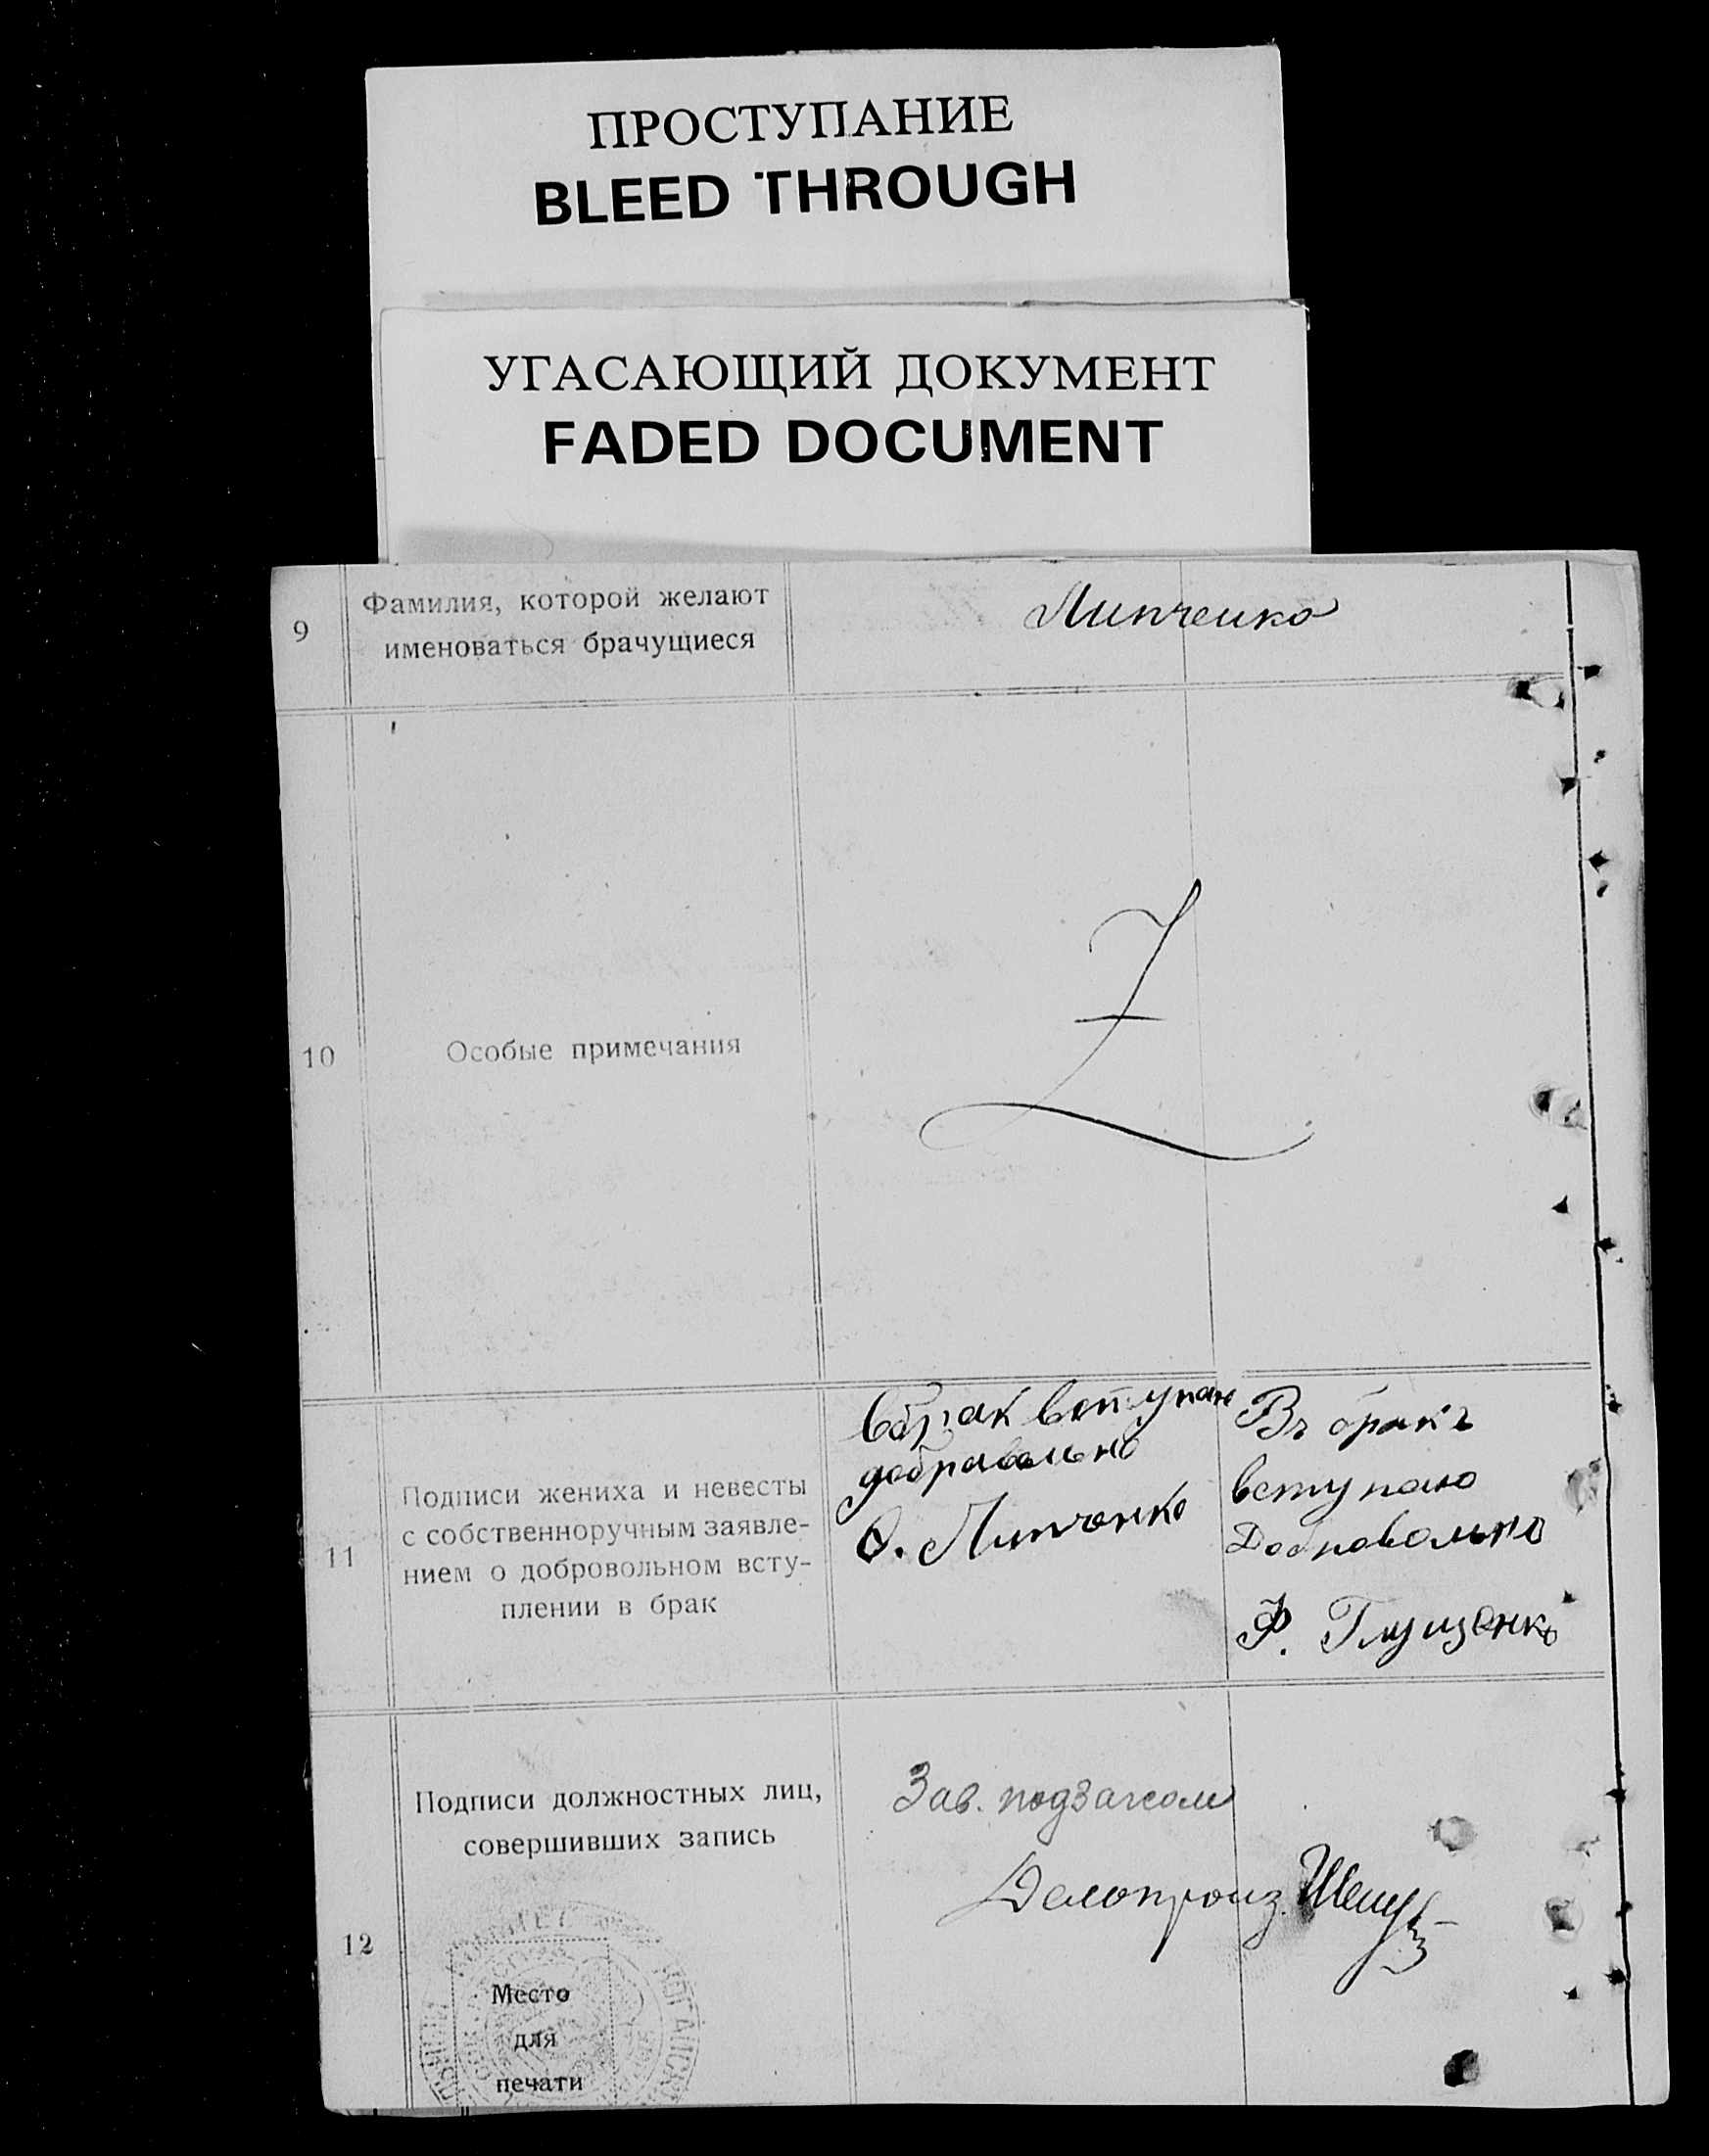 ПРОСТУПАНИЕ
BLEED THROUGH
УГАСАЮЩИЙ ДОКУМЕНТ
FADED DOCUMENT
9
Фамилия, которой желают
именоваться брачущиеся
Липченко
10
Особые примечания
Z
11
Подписи жениха и невесты
с собственноручным заявле-
нием о добровольном всту-
плении в брак
вбрак вступаю
добравольно
О. Липченко
Въ бракъ
вступаю
Добровольно
Ф. Глущенко
12
Подписи должностных лиц,
совершивших запись
Зав. подзагсом
Делопроиз.
Место
для
печати